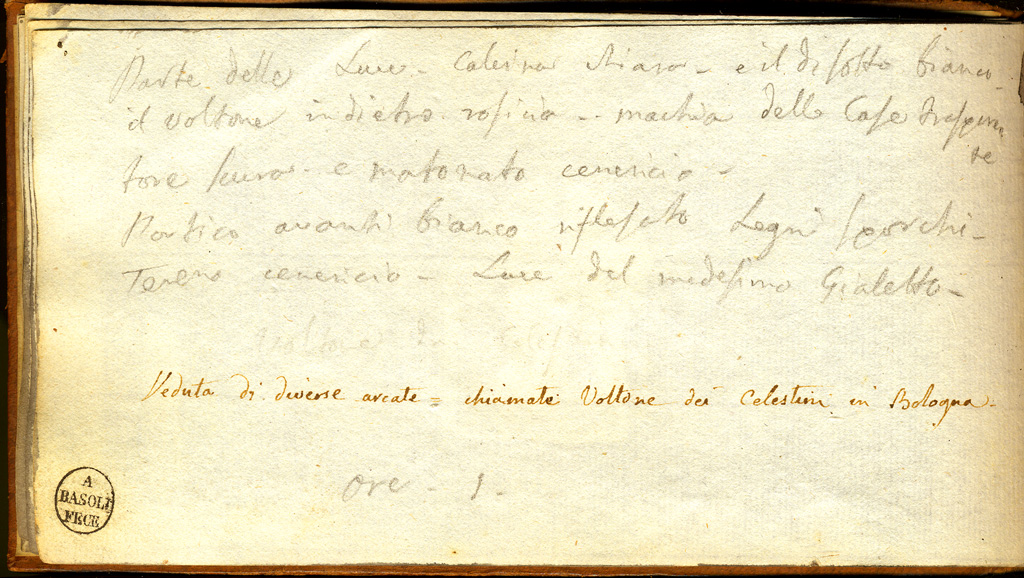 Parte delle Luce - Calcina chiara - e il di sotto bianco -
il voltone in dietro rosicio - machia delle Case traspirin
te
tore scura - e matonato cenericio -
Portico avanti bianco riflesato Legni sporchi -
Tereno cenericio - Luce del medesimo Gialetto -
Voltone
Veduta di diverse arcate = chiamate Voltone dei Celestini in Bologna =
Ore - 1 -
A
BASOLI
FECE